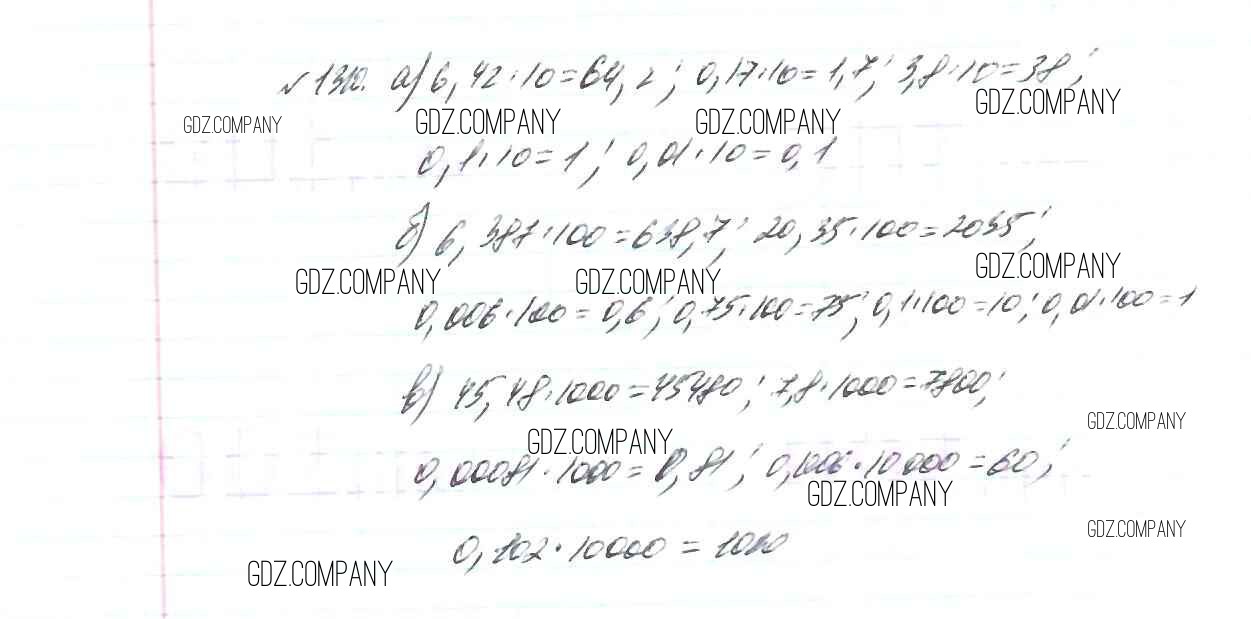 №1310. а) 6,42·10=64,2; 0,17·10=1,7; 3,8·10=38;
GDZ.COMPANY GDZ.COMPANY GDZ.COMPANY GDZ.COMPANY
0,1·10=1; 0,01·10=0,1
б) 6,387·100=638,7; 20,35·100=2035;
GDZ.COMPANY GDZ.COMPANY GDZ.COMPANY
0,006·100=0,6; 0,75·100=75; 0,1·100=10; 0,01·100=1
в) 45,48·1000=45480; 7,8·1000=7800;
GDZ.COMPANY GDZ.COMPANY
0,00081·1000=0,81; 0,006·10000=60;
GDZ.COMPANY
0,102·10000=1020
GDZ.COMPANY GDZ.COMPANY